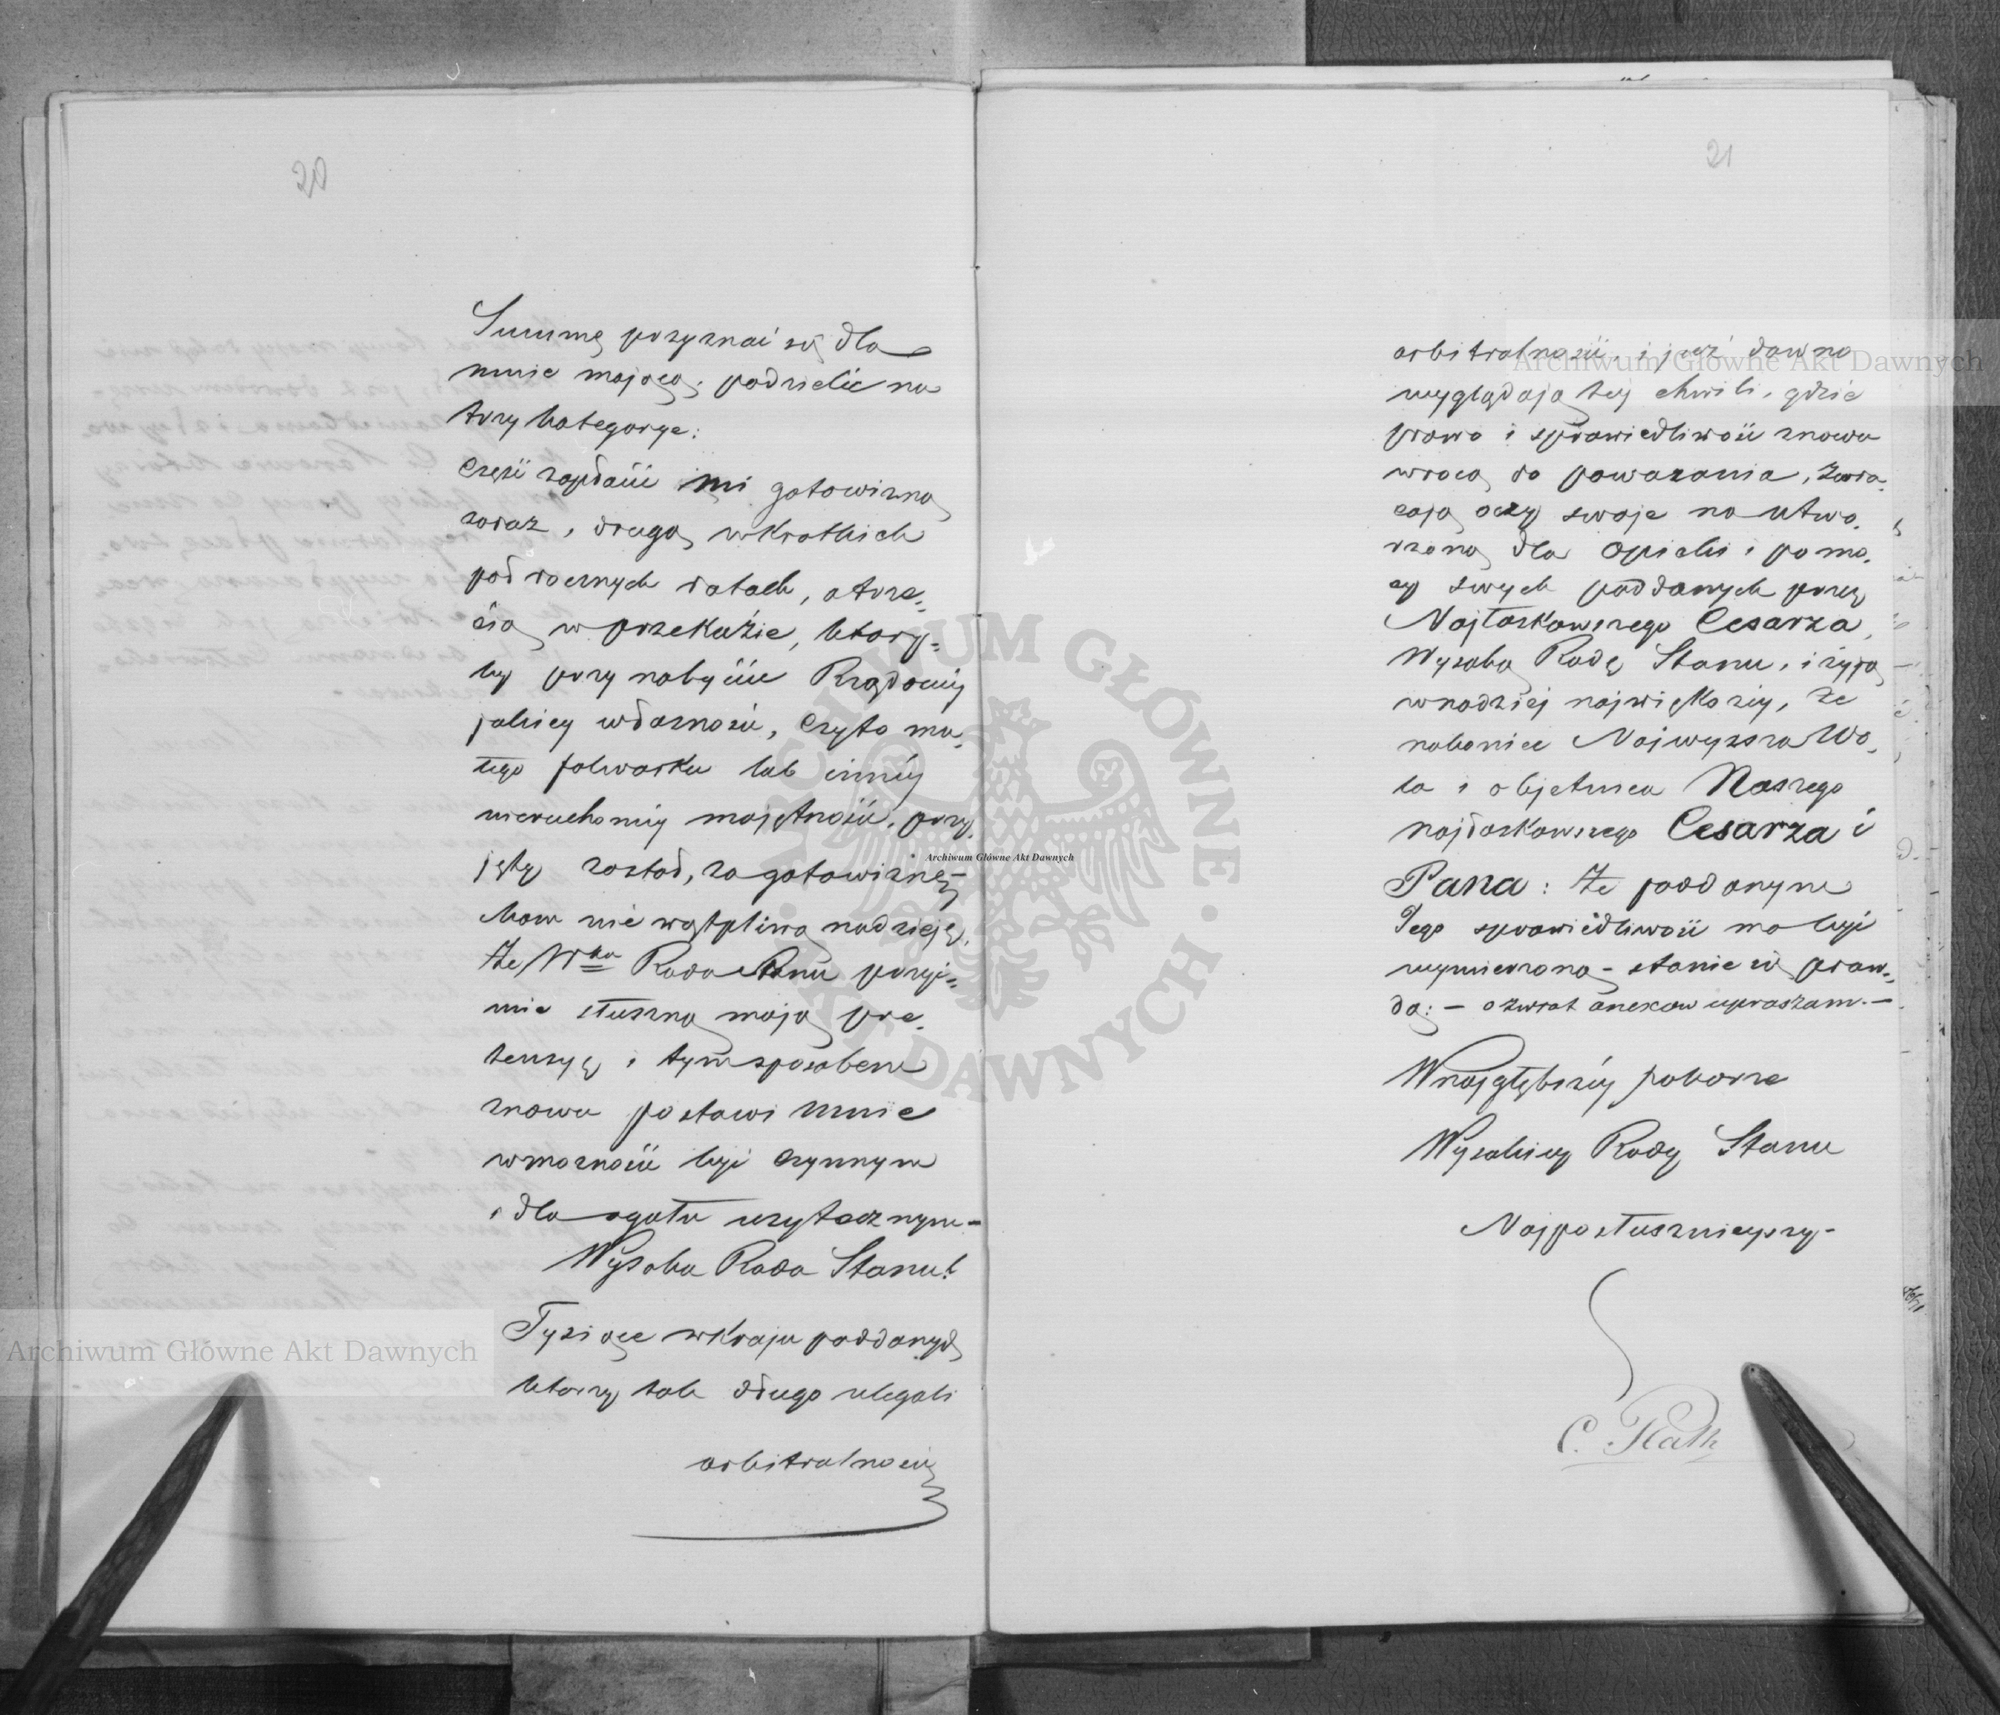 20
Summę przyznać się dla
mnie mającą, podzielić na
trzy kategorye:
Część zapłacić mi gotowizną
zaraz, drugą w krotkich
pod rocznych ratach, a trze=
cią w przekazie, ktory=
by przy nabyciu Rządowéj
jakiey własności, czyto ma=
łego folwarku lub innéj
nieruchoméj majętności, przy=
jęty został, za gotowiznę –
Mam nie wątpliwą nadzieję,
że Wka Rada Stanu przyj=
mie słuszną moją pre=
tensyę i tym sposobem
znowu postawi mnie
w możności być czynnym
i dla ogółu użytecznym –
Wysoka Rada Stanu!
Tysiące w kraju poddanych
ktorzy tak długo ulegali
arbitralności
21
arbitralności, i już dawno
wyglądają téj chwili, gdzie
prawo i sprawiedliwość znowu
wrocą do poważania, zwra=
cają oczy swoje na utwo=
rzoną dla opieki i pomo=
cy swych poddanych przez
Najłaskawszego Cesarza,
Wysoką Radę Stanu, i żyją
w nadziej największéj, że
nakoniec Najwyższa Wo=
la i objetnica Naszego
najłaskawszego Cesarza i
Pana: że poddanym
Jego sprawiedliwość ma być
wymierzoną – stanie się praw=
dą: – o zwrot anexow upraszam. –
W najgłębszéj pokorze
Wysokiey Rady Stanu
Najposłusznieyszy –
C. Plath
Archiwum Główne Akt Dawnych
Archiwum Główne Akt Dawnych
Archiwum Główne Akt Dawnych
ARCHIWUM GŁÓWNE · AKT DAWNYCH ·